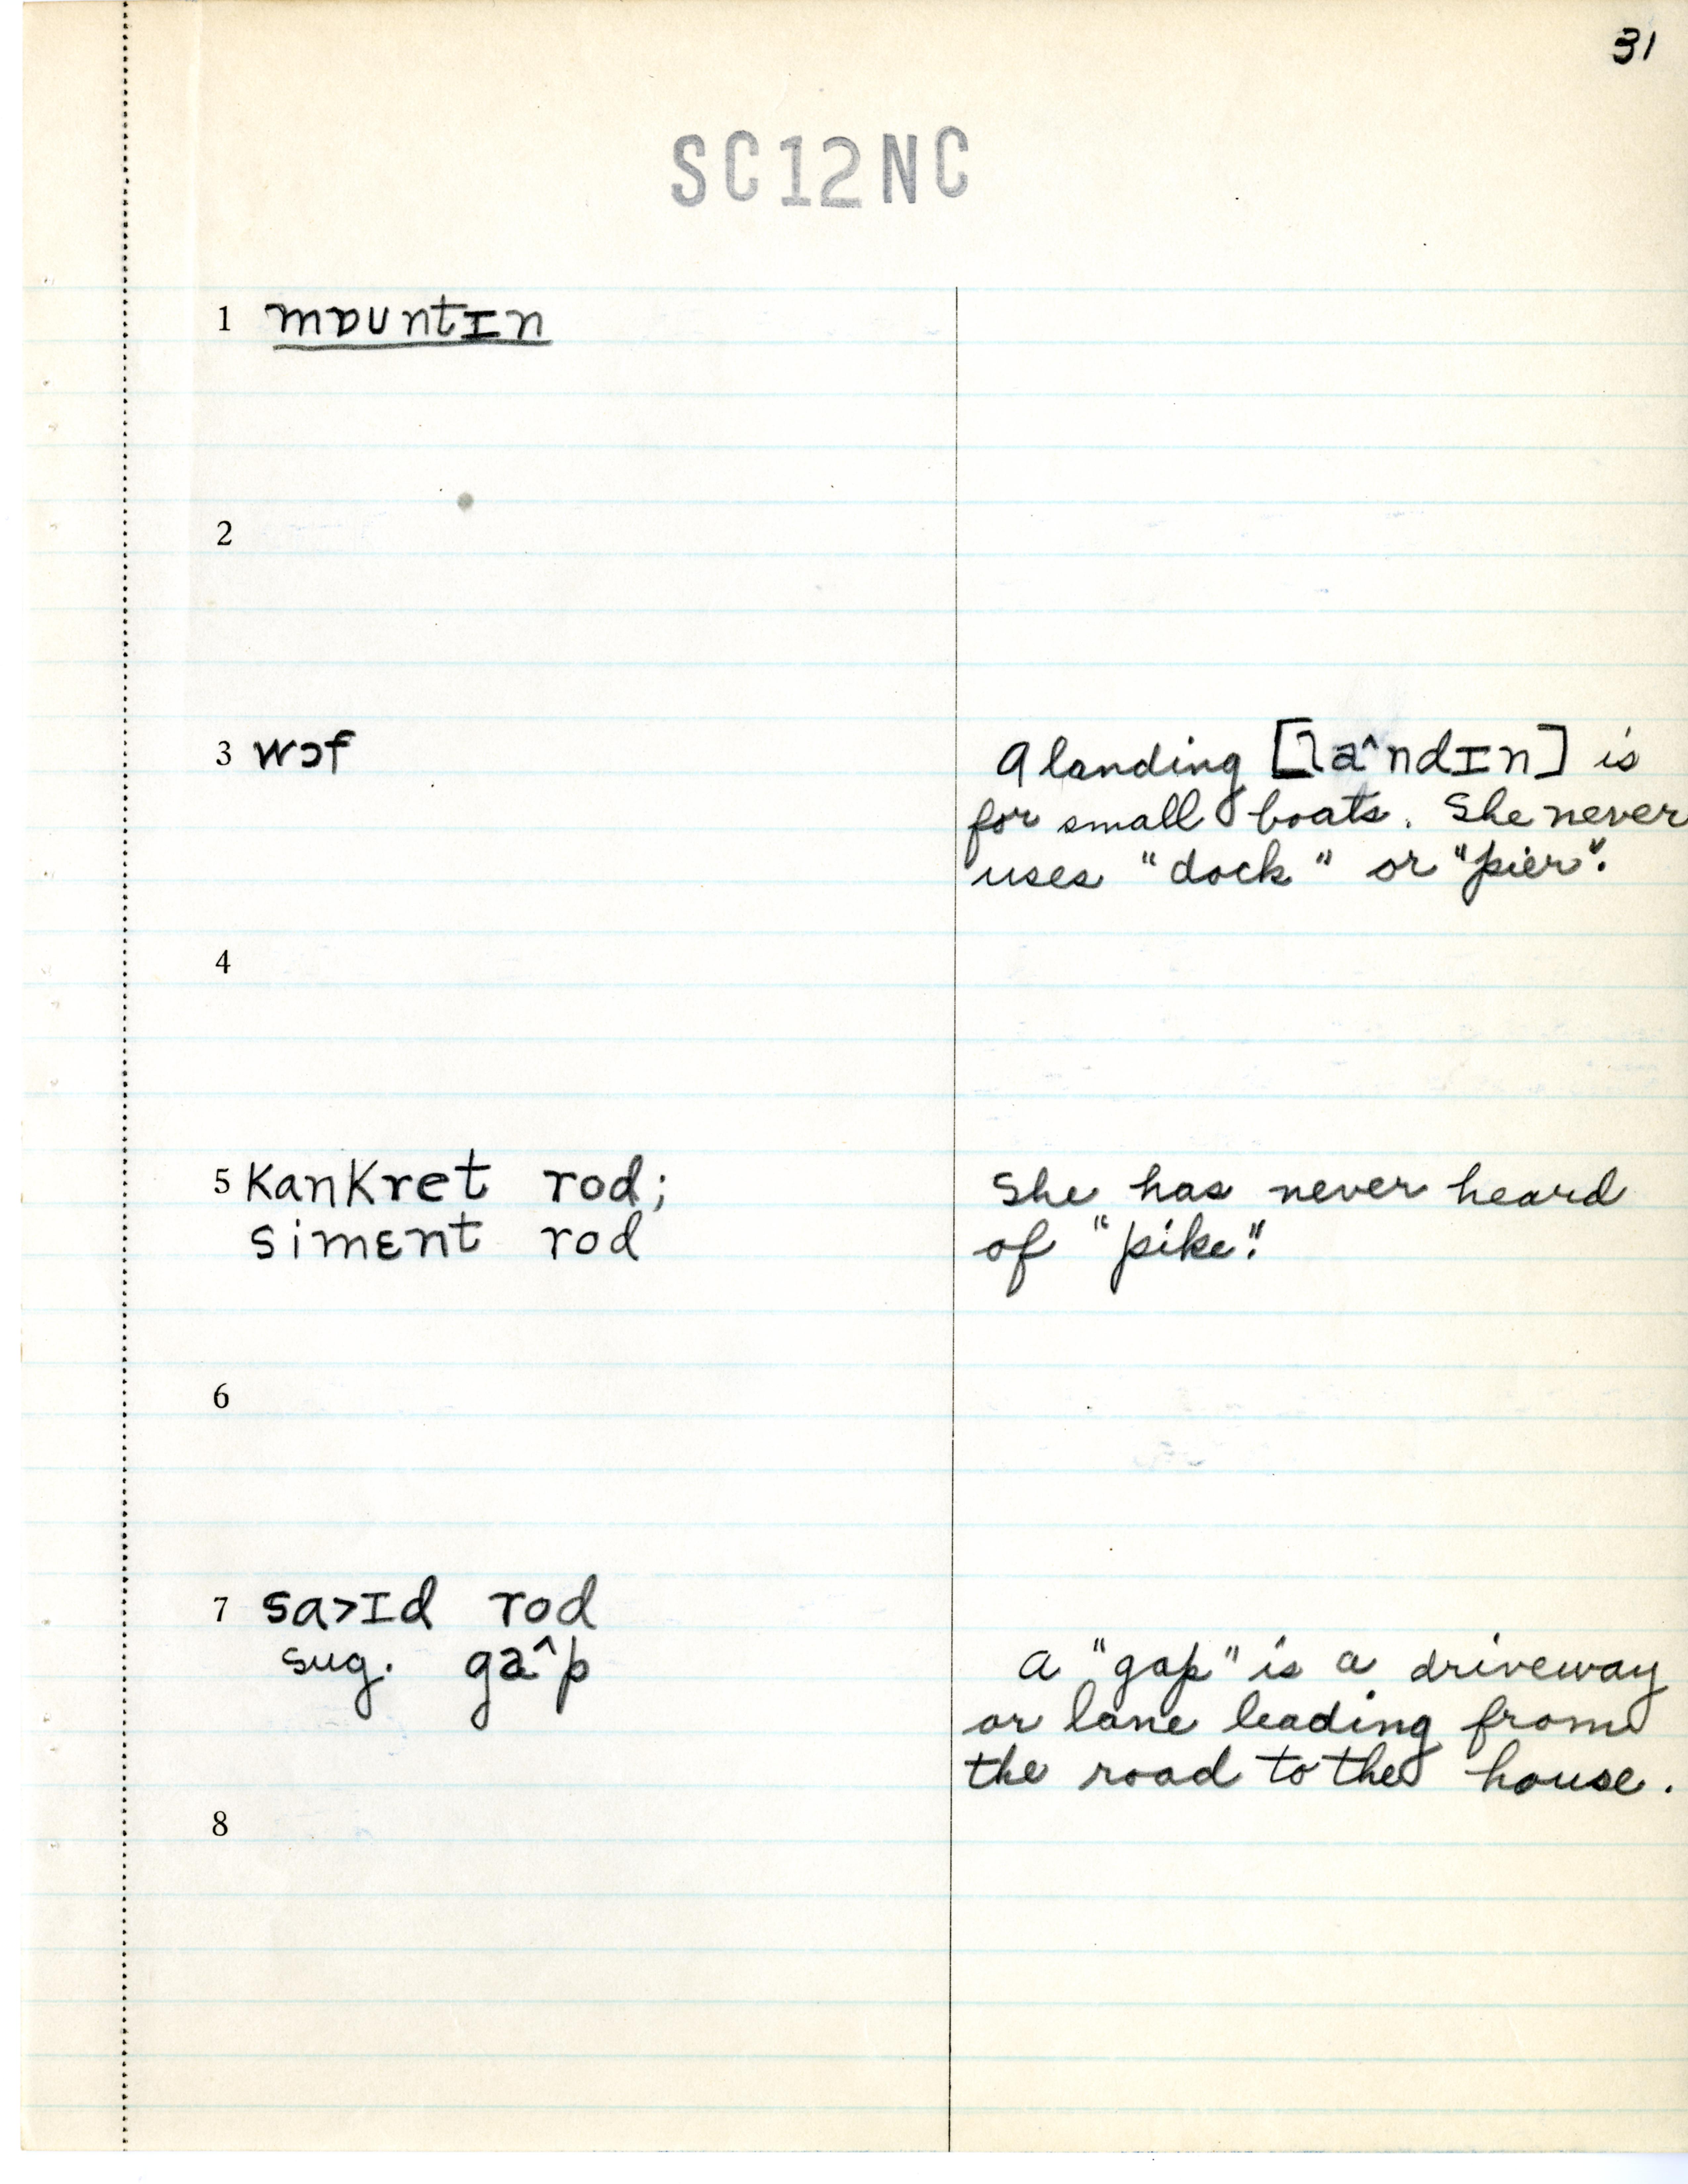 31
SC12NC
1 mɒuntɪn
2
3 wɔf
A landing [la^ndɪn] is
for small boats. She never
uses "dock" or "pier".
4
5 kankret rod;
simɛnt rod
She has never heard
of "pike".
6
7 sa>ɪd rod
sug. ga^p
A "gap" is a driveway
or lane leading from
the road to the house.
8